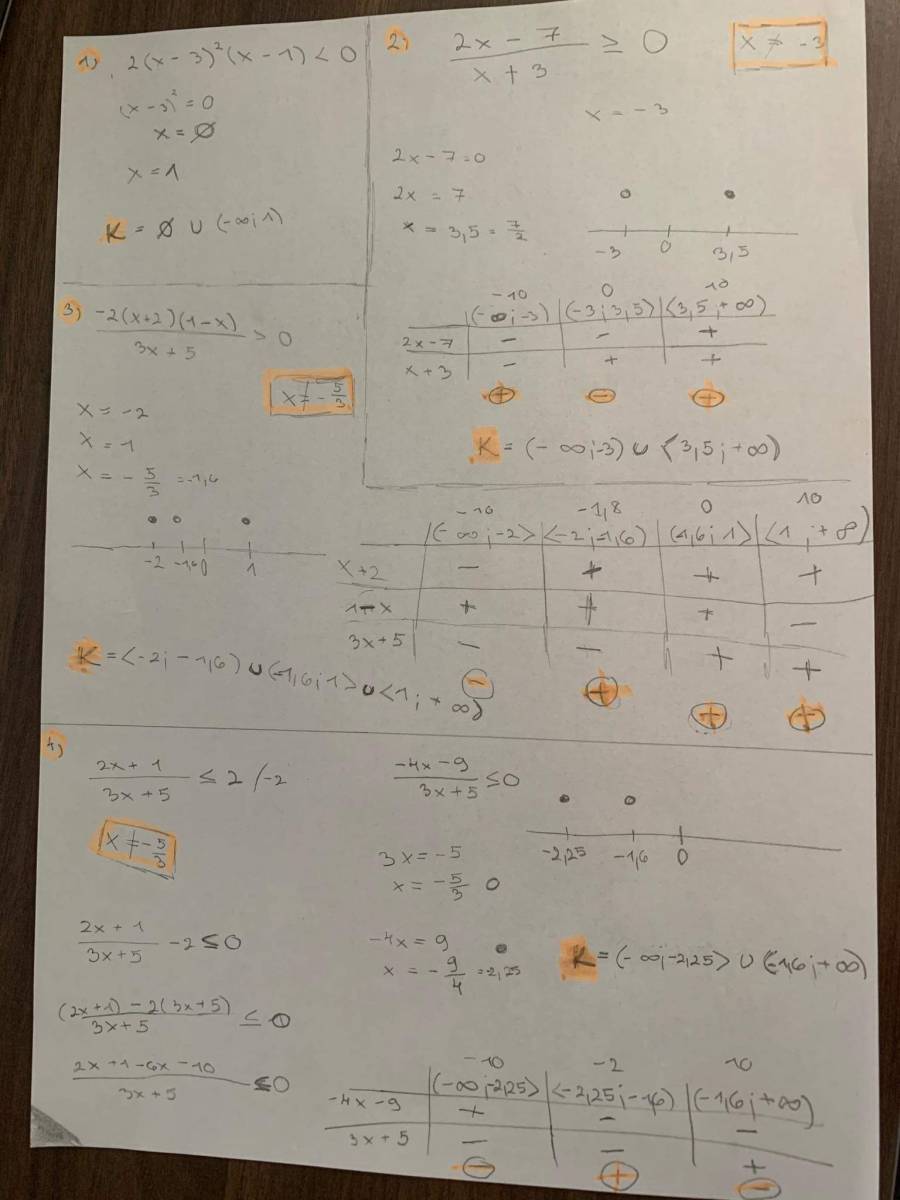 1) 2(x-3)²(x-1) < 0
(x-3)² = 0
x = ∅
x = 1
K = ∅ ∪ (-∞; 1)
2) (2x-7)/(x+3) ≥ 0
x ≠ -3
x = -3
2x-7=0
2x = 7
x = 3,5 = 7/2
-3 0 3,5
-10 0 10
(-∞;-3) (-3;3,5) <3,5;+∞)
2x-7 - - +
x+3 - + +
+ - +
K = (-∞;-3) ∪ <3,5;+∞)
3) (-2(x+2)(1-x))/(3x+5) > 0
x ≠ -5/3
x = -2
x = 1
x = -5/3 = -1,6
-2 -1,6 0 1
-10 -1,8 0 10
(-∞;-2> <-2;-1,6) (-1,6;1> <1;+∞)
x+2 - + + +
1-x + + + -
3x+5 - - + +
- + + +
K = <-2;-1,6) ∪ (-1,6;1> ∪ <1;+∞)
4)
(2x+1)/(3x+5) ≤ 2 /-2
x ≠ -5/3
(2x+1)/(3x+5) -2 ≤ 0
((2x+1)-2(3x+5))/(3x+5) ≤ 0
(2x+1-6x-10)/(3x+5) ≤ 0
(-4x-9)/(3x+5) ≤ 0
3x = -5
x = -5/3
-4x = 9
x = -9/4 = 2,25
-2,25 -1,6 0
K = (-∞;-2,25> ∪ (-1,6;+∞)
-10 -2 10
(-∞;-2,25> <-2,25;-1,6) (-1,6;+∞)
-4x-9 + - -
3x+5 - - +
- + -